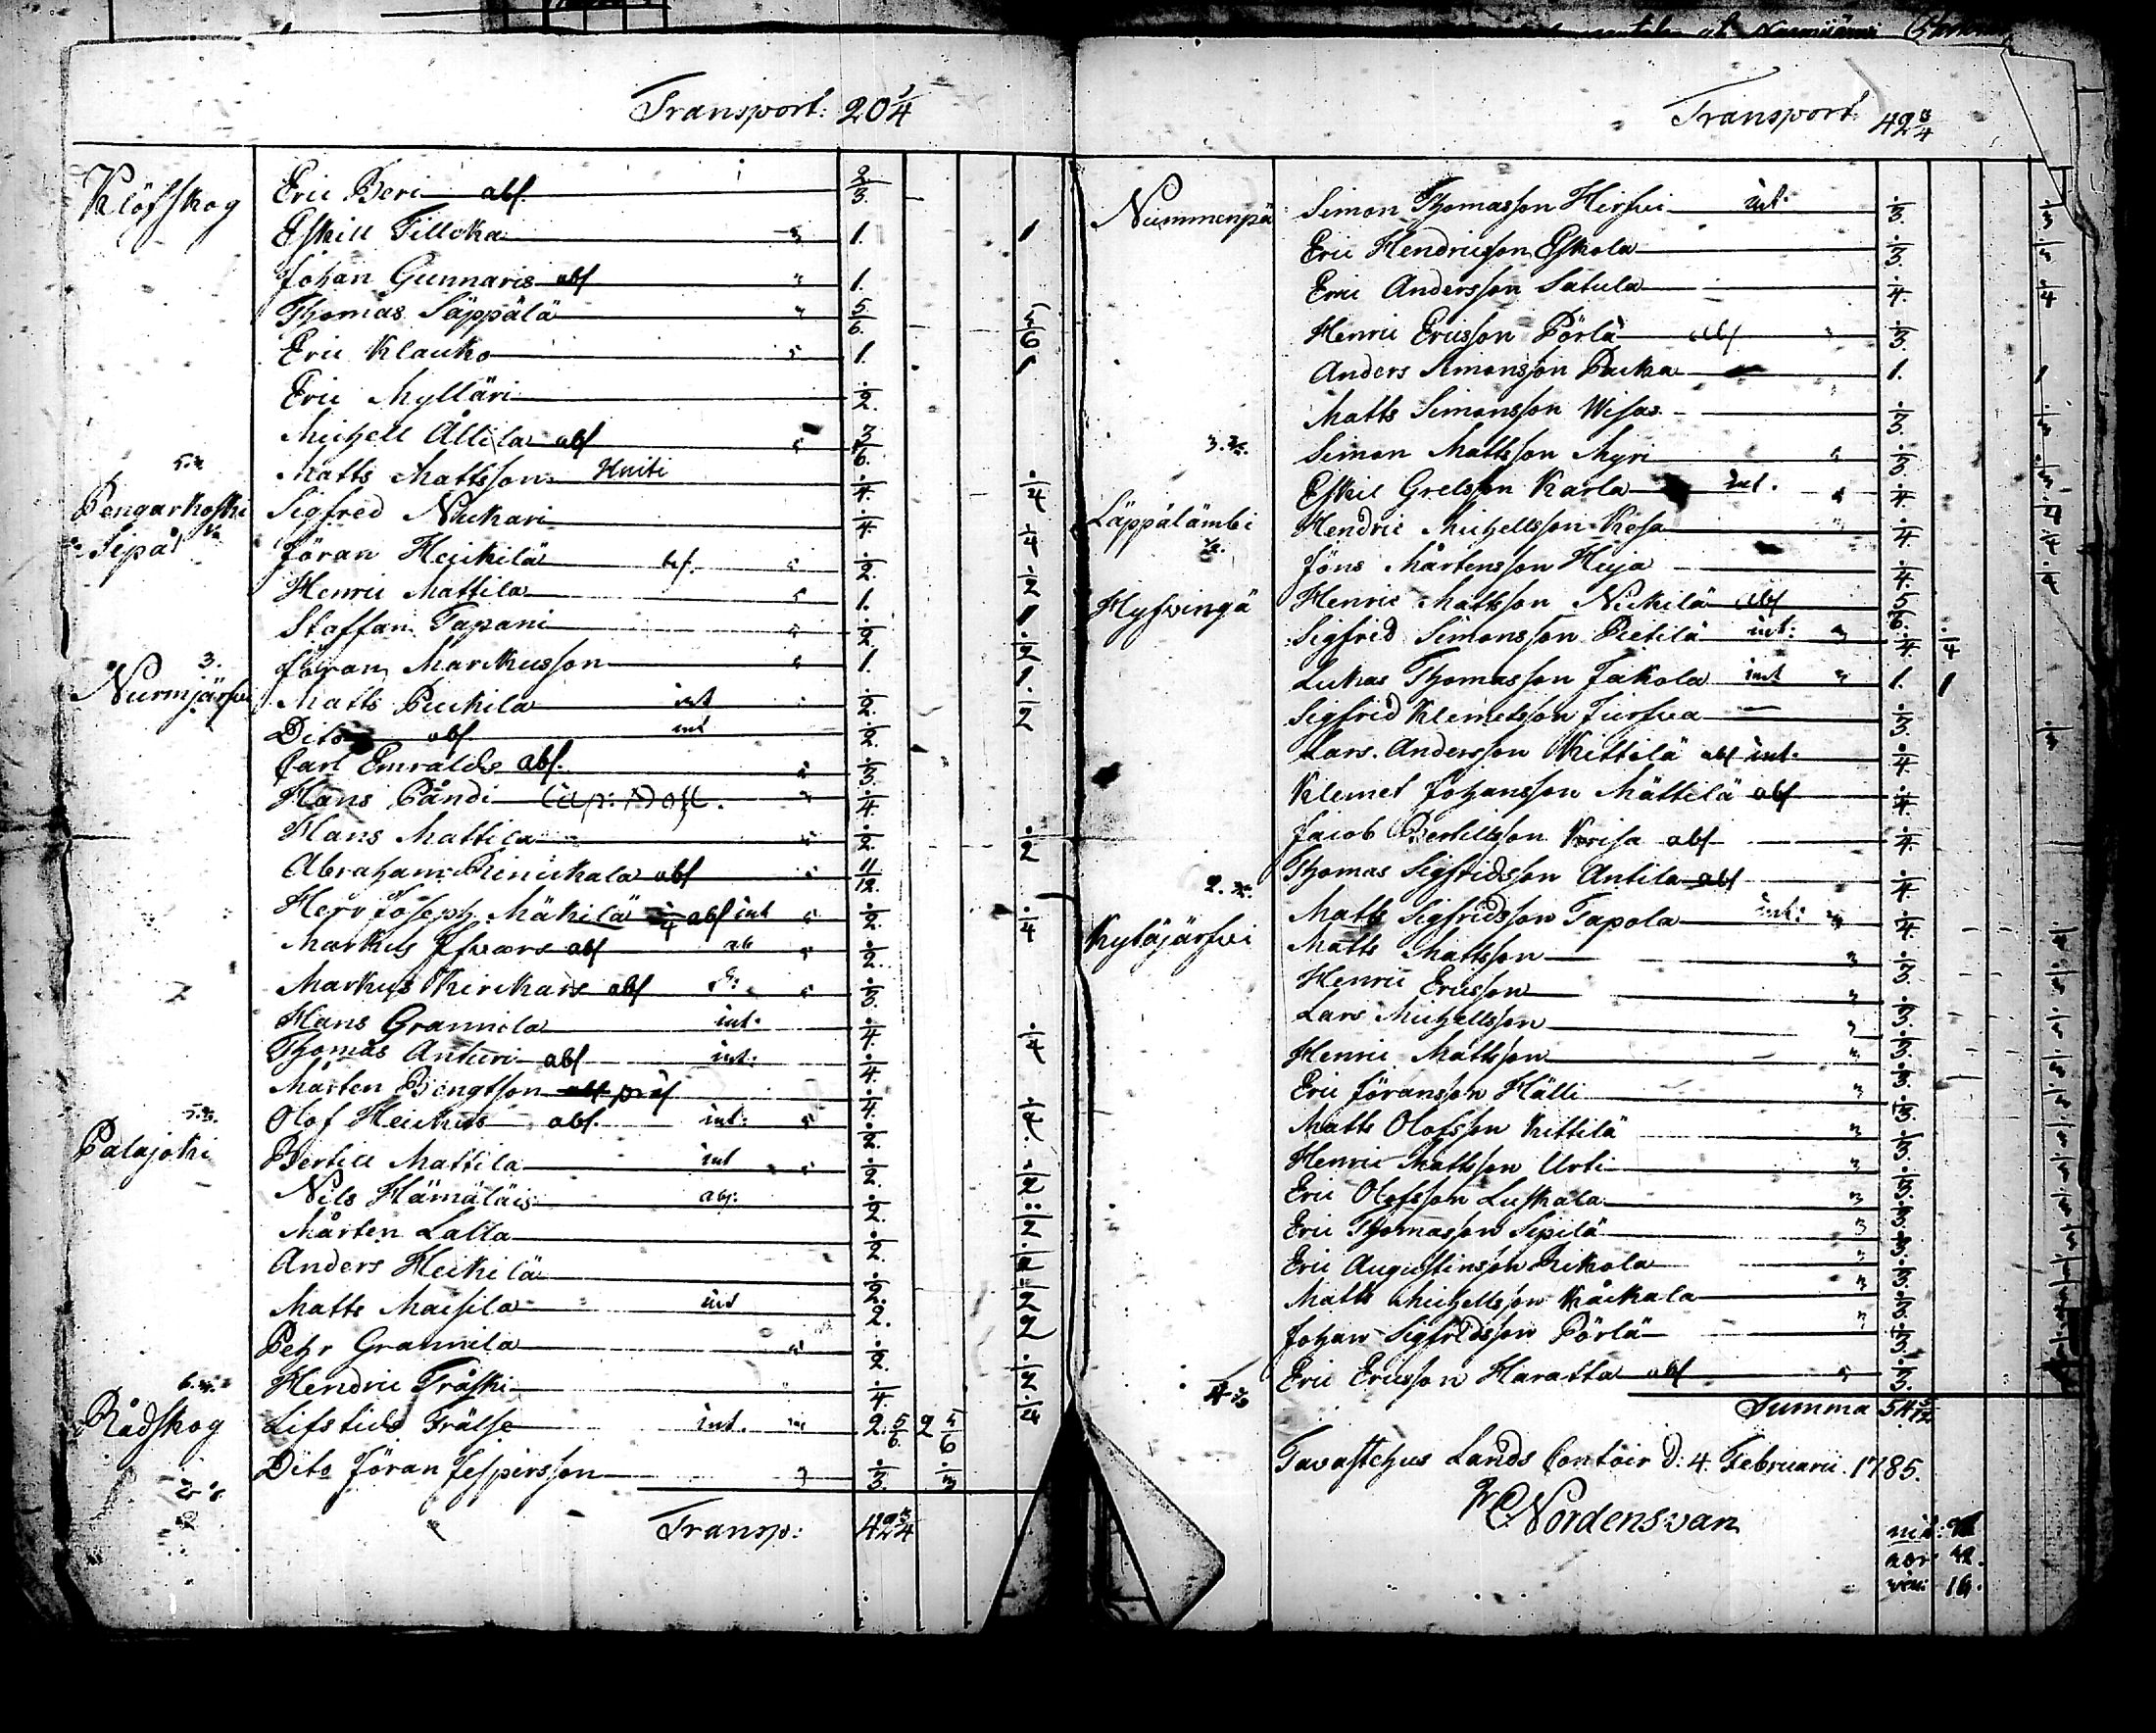 Transport: 20 1/4
Klöfskog Eric Beri abs. 2/3
Eskill Tilloka 1. 1
Johan Gunnaris abs 1.
Thomas Säppälä 5/6. 5/6
Eric Klauko 1. 1
Eric Mylläri ./2.
Michell Allila abs 5/6.
Matts Mattsson Kniti ./4. ./4
Pengarkoski Sigfred Nukari ./4. ./4
Sipå Jöran Heikilä ./2. ./2
Henric Mattila 1. 1
Staffan Tapani ./2. ./2
3.
Jöran Markusson 1. 1.
Nurmjärfwi Matts Puckila int ./2. ./2
Dito abs int ./2.
Carl Emralds abs. ./3.
Hans Påndi ./4.
Hans Mattila ./2. ./2
Abraham Reinickala abs 11/12.
Herr Joseph Mäkilä ./4 abs int ./2. ./4
Markus Ifwars abs ./2.
Markus Kirckars abs ./3.
Hans Grannila int. ./4. ./4
Thomas Anturi abs int. ./4.
Mårten Bengtson abs præs ./4. ./4.
Olof Heickus abs. int. ./2.
Palajoki Bertill Mattila int ./2. ./2
Nils Hämäläis abs. ./2. ./2
Mårten Lalla ./2.
Anders Heikilä ./2. ./2
Matts Maisila int 2. 2
Pehr Grannila ./2. ./2
Hendric Träski ./4. ./4
Rådskog Lifstids Frälse int. 2. 5/6. 2 5/6
Dito Jöran Jespersson ./3. ./3
Transp: 42 3/4
Transport. 42 3/4
Nummenpä Simon Thomasson Hirfwi int. ./3. ./3
Eric Hendricsson Eskola ./3. ./3
Eric Andersson Satula ./4. ./4
Henric Ericsson Pörlä abs ./3.
Anders Simonsson Pucka 1. 1
Matts Simonsson Wisas ./3. ./3
Simon Mattsson Myri ./3. ./3
Eskil Grelsson Karla int. ./4. ./4
Läppälämbi Hendric Michellsson Kosa ./4. ./4
Jöns Mårtensson Huja ./4. ./4
Hyfwingä Henric Mattsson Nickilä abs 5/6.
Sigfrid Simonsson Pietilä int: ./4. ./4
Lukas Thomasson Jakola int 1. 1
Sigfrid Klemetsson Jurfwa ./3. ./3
Lars Andersson Kittilä abs int. ./4.
Klemet Johansson Mättilä abs ./4.
Jacob Bertillsson Krisa abs ./4.
Thomas Sigfridsson Antila abs ./4.
Matts Sigfridsson Tapola int: ./4.
Kytäjärfwi Matts Mattsson ./3. ./3
Henric Ericsson ./3. ./3
Lars Michellsson ./3. ./3
Henric Mattsson ./3. ./3
Eric Jöransson Hälli ./3. ./3
Matts Olofsson Kittilä ./3. ./3
Henric Mattsson Urti ./3. ./3
Eric Olofsson Luskala ./3. ./3
Eric Thomasson Sipilä ./3. ./3
Eric Augustinsson Rikola ./3. ./3
Matts Michellsson Kåickala ./3. ./3
Johan Sigfridsson Pörlä ./3. ./3
Eric Ericsson Haratta abs ./3.
Summa 54 5/12
Tavastehus Lands Contoir d: 4 Februarii 1785.
Nordensvan